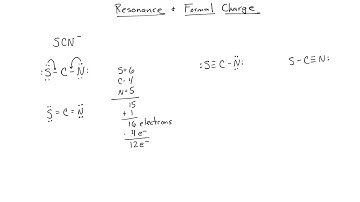 Resonance + Formal Charge
SCN⁻
:S̤̈ – C – N̤̈:
S=6
C=4
N=5
15
+ 1
16 electrons
- 4e⁻
12e⁻
S̤̈ = C = N̤̈
:S≡C–N̤̈:
S–C≡N: